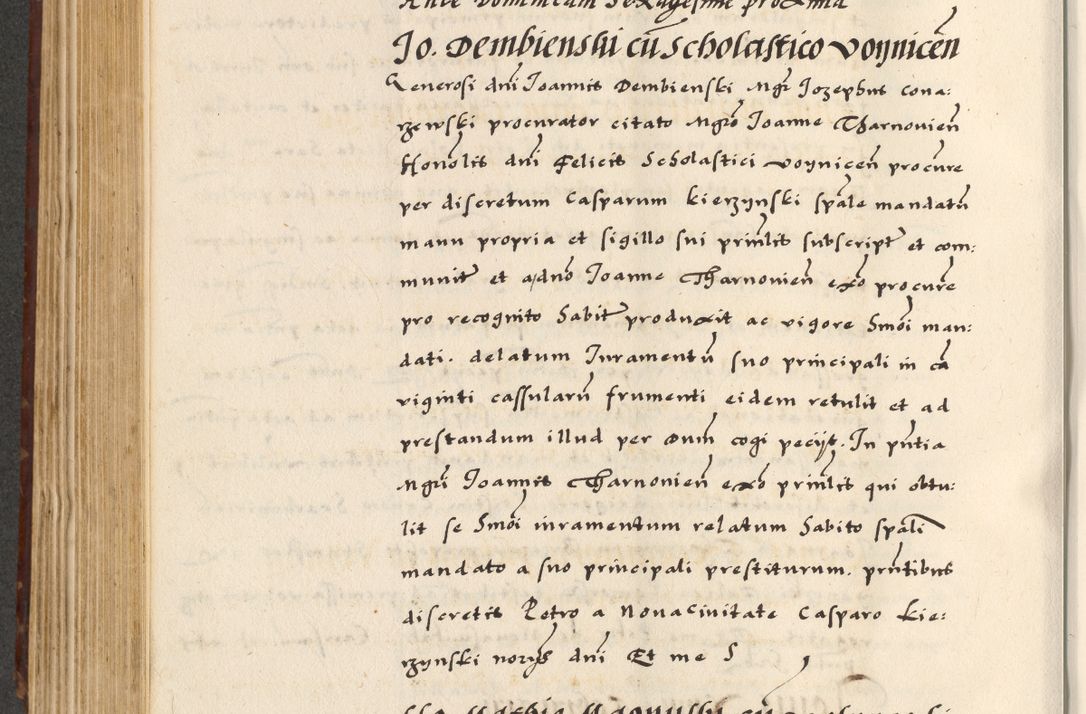 Ante Dominicam Sexagesime proxima
Jo. Dembienski cū Scholastico Voynicen̄
Generosi dn̄i Joannis Dembienski Mgr̄ Jozephus cona:
rzewski procurator citato Mgr̄o Joanne Tharnovien̄
Honōlis dn̄i Felicis Scholastici voynicen̄ procure
per discretum Casparum kierzynski spāle mandatū
manu propria et sigillo sui prin̄lis subscript̄ et com:
munit̄ et a dn̄o Joanne Tharnovien̄ exō procurē
pro recognito habit̄ produxit ac vigore hmōi man:
dati. delatum Juramentū suo principali in cā
viginti cassularū frumenti eidem retulit et ad
prestandum illud per Dum̄ cogi peciit. In pn̄tia
Mgr̄i Joannis Tharnovien̄ exō prin̄lis qui obtu:
lit se hmōi iuramentum relatum habito spāli
mandato a suo principali prestiturum. prn̄tibus
discretis Petro a Novacivitate Casparo kie:
rzynski norys dn̄i Et me S